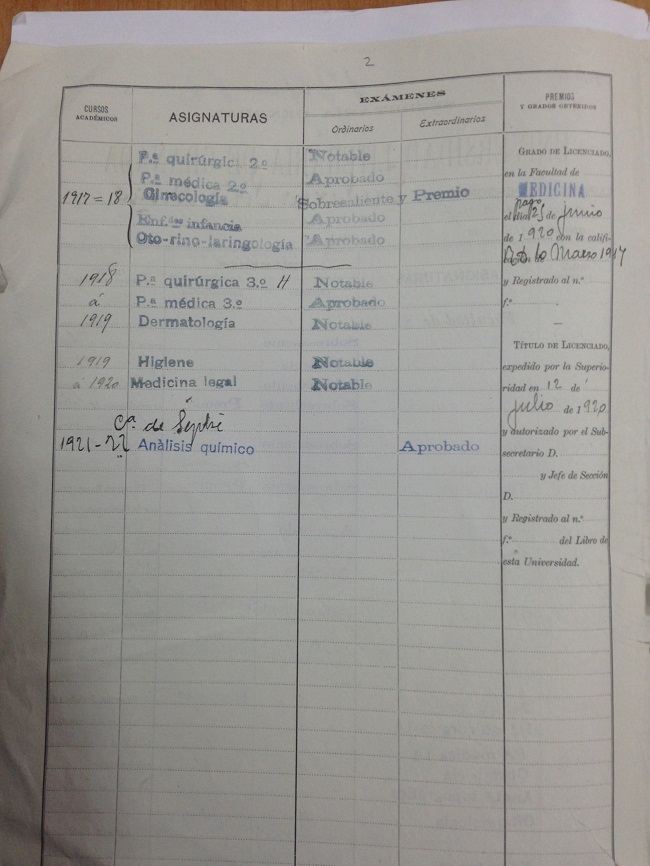 2
CURSOS
ACADÉMICOS
ASIGNATURAS
EXÁMENES
Ordinarios
Extraordinarios
PREMIOS
Y GRADOS OBTENIDOS
P.a quirúrgica 2.o Notable
P.a médica 2.o Aprobado
1917=18 Ginecología Sobresaliente y Premio
Enf.des infancia Aprobado
Oto-rino-laringología Aprobado
1918 P.a quirúrgica 3.o H Notable
á P.a médica 3.o Aprobado
1919 Dermatología Notable
1919 Higiene Notable
á 1920 Medicina legal Notable
Ca. de
1921-22 Anàlisis químico Aprobado
GRADO DE LICENCIADO,
en la Facultad de
MEDICINA
pago
el día 25 de junio
de 1920 con la califi-
Marzo 1917
y Registrado al n.o
f.o
TÍTULO DE LICENCIADO,
expedido por la Superio-
ridad en 12 de
julio de 1920
y autorizado por el Sub-
secretario D.
y Jefe de Sección
D.
y Registrado al n.o
f.o del Libro de
esta Universidad.